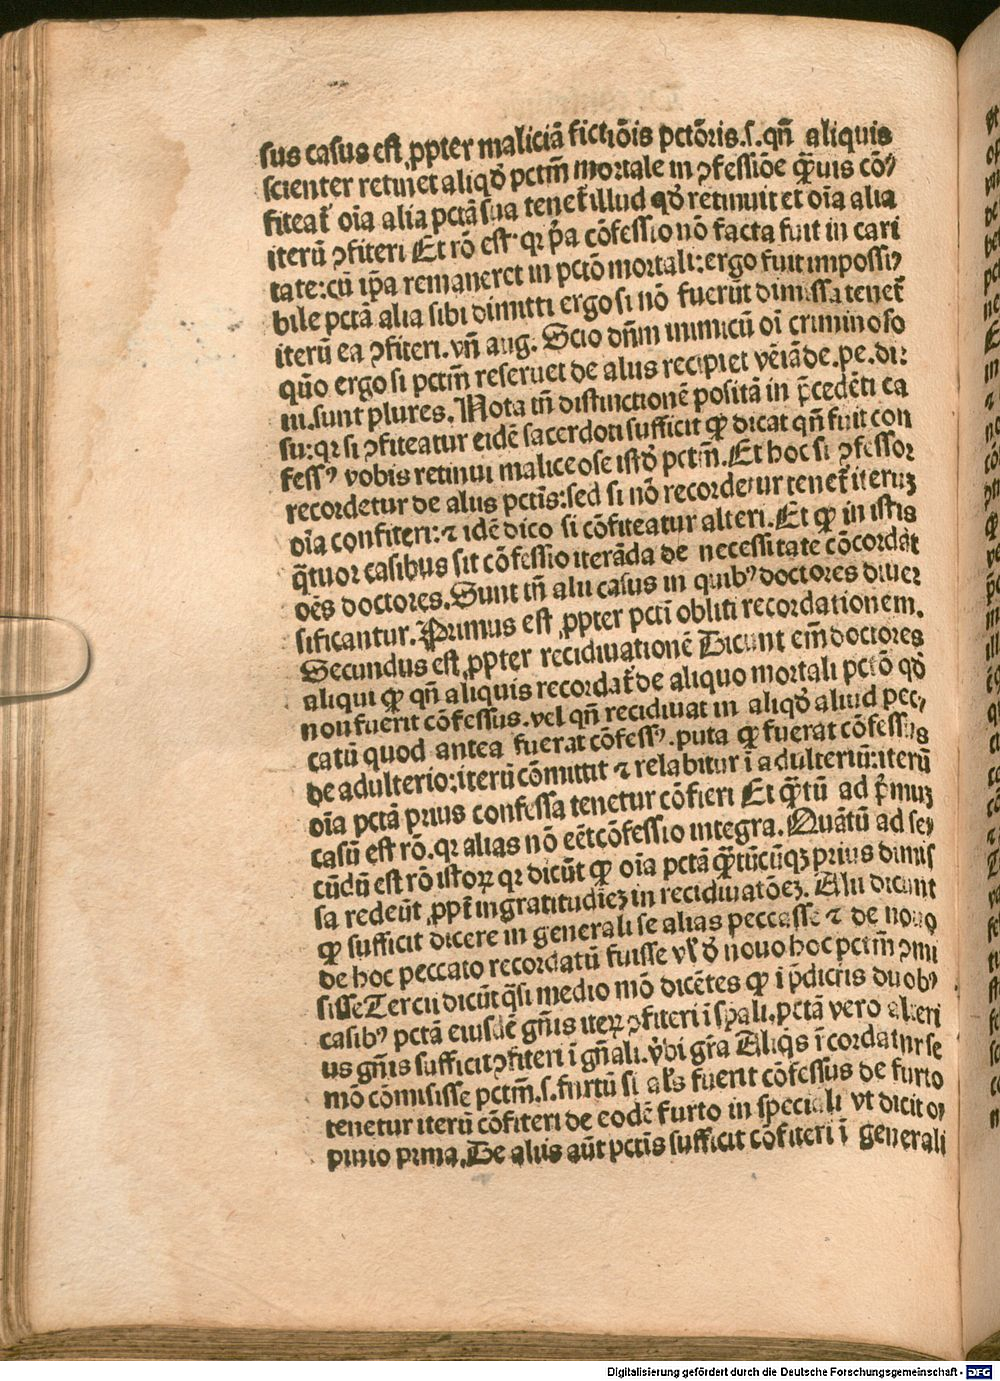 sus casus est ꝓpter maliciã fictiõis pctõris.s.qñ aliquis
scienter retinet aliqđ pctm̃ mortale in ꝯfessiõe q̃uis cõ⸗
fiteat̃ oĩa alia pctã sua tenet̃ illud qđ retinuit et oĩa alia
iterũ ꝯfiteri Et rõ est qꝛ p̃a cõfessio nõ facta fuit in cari
tate:cũ ip̃a remaneret in pctõ mortali:ergo fuit impossi⸗
bile pctã alia sibi dimitti ergo si nõ fuerũt dimissa tenet̃
iterũ ea ꝯfiteri.vñ aug. Scio dñm inimicũ oĩ criminoso
quõ ergo si pctm̃ reseruet de aliis recipiet vẽiã de.pe.di⸗
iii.sunt plures. Nota tñ distinctionẽ positã in p̃cedẽti ca
su:qꝛ si ꝯfiteatur eidẽ sacerdoti sufficit ꝙ dicat qñ fuit con
fessꝰ vobis retinui maliceose istđ pctm̃. Et hoc si ꝯfessor
recordetur de aliis pctĩs:sed si nõ recordetur tenet̃ iteruꝫ
oĩa confiteri:⁊ idẽ dico si cõfiteatur alteri. Et ꝙ in istis
q̃tuor casibus sit cõfessio iterãda de necessitate cõcordãt
oẽs doctores. Sunt tñ alii casus in quibꝰ doctores diuer
sificantur. Primus est ꝓpter pcti obliti recordationem.
Secundus est ꝓpter recidiuationẽ Dicunt em̃ doctores
aliqui ꝙ qñ aliquis recordat̃ de aliquo mortali pctõ qđ
non fuerit cõfessus.vel qñ recidiuat in aliqđ aliud pec⸗
catũ quod antea fuerat cõfessꝰ.puta ꝙ fuerat cõfessus
de adulterio:iterũ cõmittit ⁊ relabitur ĩ adulteriũ:iterũ
oĩa pctã prius confessa tenetur cõfieri Et q̃tũ ad p̃muꝫ
casũ est rõ.qꝛ alias nõ eẽt cõfessio integra. Quãtũ ad se⸗
cũdũ est rõ istoꝝ qꝛ dicũt ꝙ oĩa pctã q̃tũcũqꝫ prius dimis
sa redeũt ꝓpt̃ ingratitudĩeꝫ in recidiuatõeꝫ. Alii dicunt
ꝙ sufficit dicere in generali se alias peccasse ⁊ de nouo
de hoc peccato recordatũ fuisse vl̃ đ nouo hoc pctm̃ ꝯmi
sisse Tercii dicũt q̃si medio mõ dicẽtes ꝙ ĩ p̃dictis duobꝰ
casibꝰ pctã eiusdẽ gñis iteꝝ ꝯfiteri ĩ sp̃ali.pctã vero alteri
us gñis sufficit ꝯfiteri ĩ gñali.v̓bi gr̃a Aliq̃s ĩcordatur se
mõ cõmisisse pctm̃.s.furtũ si al̃s fuerit cõfessus de furto
tenetur iterũ cõfiteri de eodẽ furto in speciali vt dicit o⸗
pinio prima. De aliis aũt pctĩs sufficit cõfiteri ĩ generali
Digitalisierung gefördert durch die Deutsche Forschungsgemeinschaft - DFG